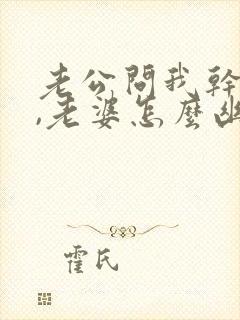 老公問我幹
,老婆怎麼出
霍氏